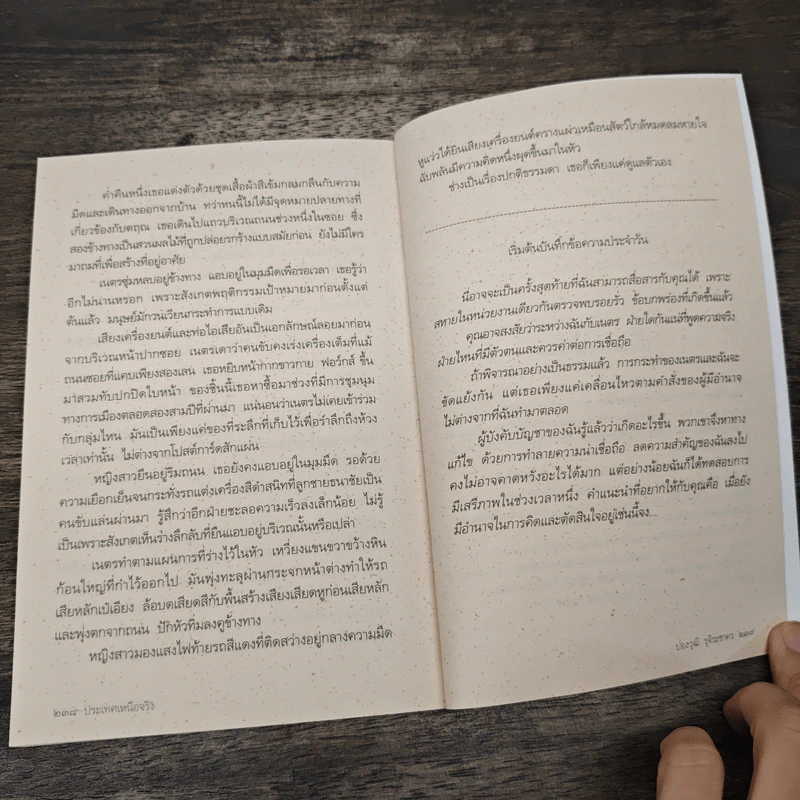 ค่ำคืนหนึ่งเธอแต่งตัวด้วยชุดเสื้อผ้าสีเข้มกลมกลืนกับความ
มืดและเดินทางออกจากบ้าน ทว่าหนนี้ไม่ได้มีจุดหมายปลายทางที่
เกี่ยวข้องกับตฤณ เธอเดินไปแถวบริเวณถนนช่วงหนึ่งในซอย ซึ่ง
สองข้างทางเป็นสวนผลไม้ที่ถูกปล่อยรกร้างแบบสมัยก่อน ยังไม่มีใคร
มาถมที่เพื่อสร้างที่อยู่อาศัย
เนตรซุ่มหลบอยู่ข้างทาง แอบอยู่ในมุมมืดเพื่อรอเวลา เธอรู้ว่า
อีกไม่นานหรอก เพราะสังเกตพฤติกรรมเป้าหมายมาก่อนตั้งแต่
ต้นแล้ว มนุษย์มักวนเวียนกระทำการแบบเดิม
เสียงเครื่องยนต์และท่อไอเสียอันเป็นเอกลักษณ์ลอยมาก่อน
จากบริเวณหน้าปากซอย เนตรเดาว่าคนขับคงเร่งเครื่องเต็มที่แม้
ถนนซอยที่แคบเพียงสองเลน เธอหยิบหน้ากากขาวกาย ฟอว์กส์ ขึ้น
มาสวมทับปกปิดใบหน้า ของชิ้นนี้เธอหาซื้อมาช่วงที่มีการชุมนุม
ทางการเมืองตลอดสองสามปีที่ผ่านมา แน่นอนว่าเนตรไม่เคยเข้าร่วม
กับกลุ่มไหน มันเป็นเพียงแค่ของที่ระลึกที่เก็บไว้เพื่อรำลึกถึงห้วง
เวลาเท่านั้น ไม่ต่างจากโปสต์การ์ดสักแผ่น
หญิงสาวยืนอยู่ริมถนน เธอยังคงแอบอยู่ในมุมมืด รอด้วย
ความเยือกเย็นจนกระทั่งรถแต่งเครื่องสีดำสนิทที่ลูกชายธนาชัยเป็น
คนขับแล่นผ่านมา รู้สึกว่าอีกฝ่ายชะลอความเร็วลงเล็กน้อย ไม่รู้
เป็นเพราะสังเกตเห็นร่างลึกลับที่ยืนแอบอยู่บริเวณนั้นหรือเปล่า
เนตรทำตามแผนการที่ร่างไว้ในหัว เหวี่ยงแขนขวาขว้างหิน
ก้อนใหญ่ที่กำไว้ออกไป มันพุ่งทะลุผ่านกระจกหน้าต่างทำให้รถ
เสียหลักเป๋เอียง ล้อบดเสียดสีกับพื้นสร้างเสียงเสียดหูก่อนเสียหลัก
และพุ่งตกจากถนน ปักหัวทิ่มลงคูข้างทาง
หญิงสาวมองแสงไฟท้ายรถสีแดงที่ติดสว่างอยู่กลางความมืด
๒๓๘ ประเทศเหนือจริง
หูแว่วได้ยินเสียงเครื่องยนต์ครางแผ่วเหมือนสัตว์ใกล้หมดลมหายใจ
ฉับพลันมีความคิดหนึ่งผุดขึ้นมาในหัว
ช่างเป็นเรื่องปกติธรรมดา เธอก็เพียงแค่ดูแลตัวเอง
เริ่มต้นบันทึกข้อความประจำวัน
นี่อาจจะเป็นครั้งสุดท้ายที่ฉันสามารถสื่อสารกับคุณได้ เพราะ
สหายในหน่วยงานเดียวกันตรวจพบรอยรั่ว ข้อบกพร่องที่เกิดขึ้นแล้ว
คุณอาจสงสัยว่าระหว่างฉันกับเนตร ฝ่ายใดกันแน่ที่พูดความจริง
ฝ่ายไหนที่มีตัวตนและควรค่าต่อการเชื่อถือ
ถ้าพิจารณาอย่างเป็นธรรมแล้ว การกระทำของเนตรและฉันจะ
ขัดแย้งกัน แต่เธอเพียงแค่เคลื่อนไหวตามคำสั่งของผู้มีอำนาจ
ไม่ต่างจากที่ฉันทำมาตลอด
ผู้บังคับบัญชาของฉันรู้แล้วว่าเกิดอะไรขึ้น พวกเขาจึงหาทาง
แก้ไข ด้วยการทำลายความน่าเชื่อถือ ลดความสำคัญของฉันลงไป
คงไม่อาจคาดหวังอะไรได้มาก แต่อย่างน้อยฉันก็ได้ทดสอบการ
มีเสรีภาพในช่วงเวลาหนึ่ง คำแนะนำที่อยากให้กับคุณคือ เมื่อยัง
มีอำนาจในการคิดและตัดสินใจอยู่เช่นนี้จง...
ปองวุฒิ รุจิระชาคร ๒๓๙